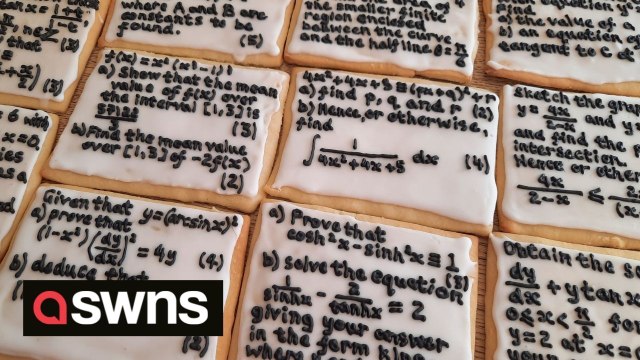 where A and B are
constants to be
found. (5)
the smaller
region enclosed
between the curve
and the half line θ = π/6
the value of
an equation
tangent to C at
that
(3)
f(x) = x²(x²-1)³
a) Show that the mean
value of f(x) over
the interval [1,3] is
(3)
b) Find the mean value
over [1,3] of -2f(x)
(2)
4x²+4x+5 ≡ (px+q)²+r
a) find p, q and r (2)
b) Hence, or otherwise,
find
∫ 1/(4x²+4x+5) dx (4)
sketch the
y =
2-x and y
and find the
intersection.
Hence or
4x/(2-x) ≤
6 with
x=0.
as a
Given that
y=(arcsinx)²
a) prove that
(1-x²)(dy/dx)² = 4y (4)
b) deduce that
(2)
a) Prove that
cosh²x - sinh²x ≡ 1
(3)
b) solve the equation
1/sinhx - 2/tanhx = 2
giving your answer
in the form k ln
where
Obtain the
dy/dx + y tan x
0≤x<π/2
y=2 at
aswns